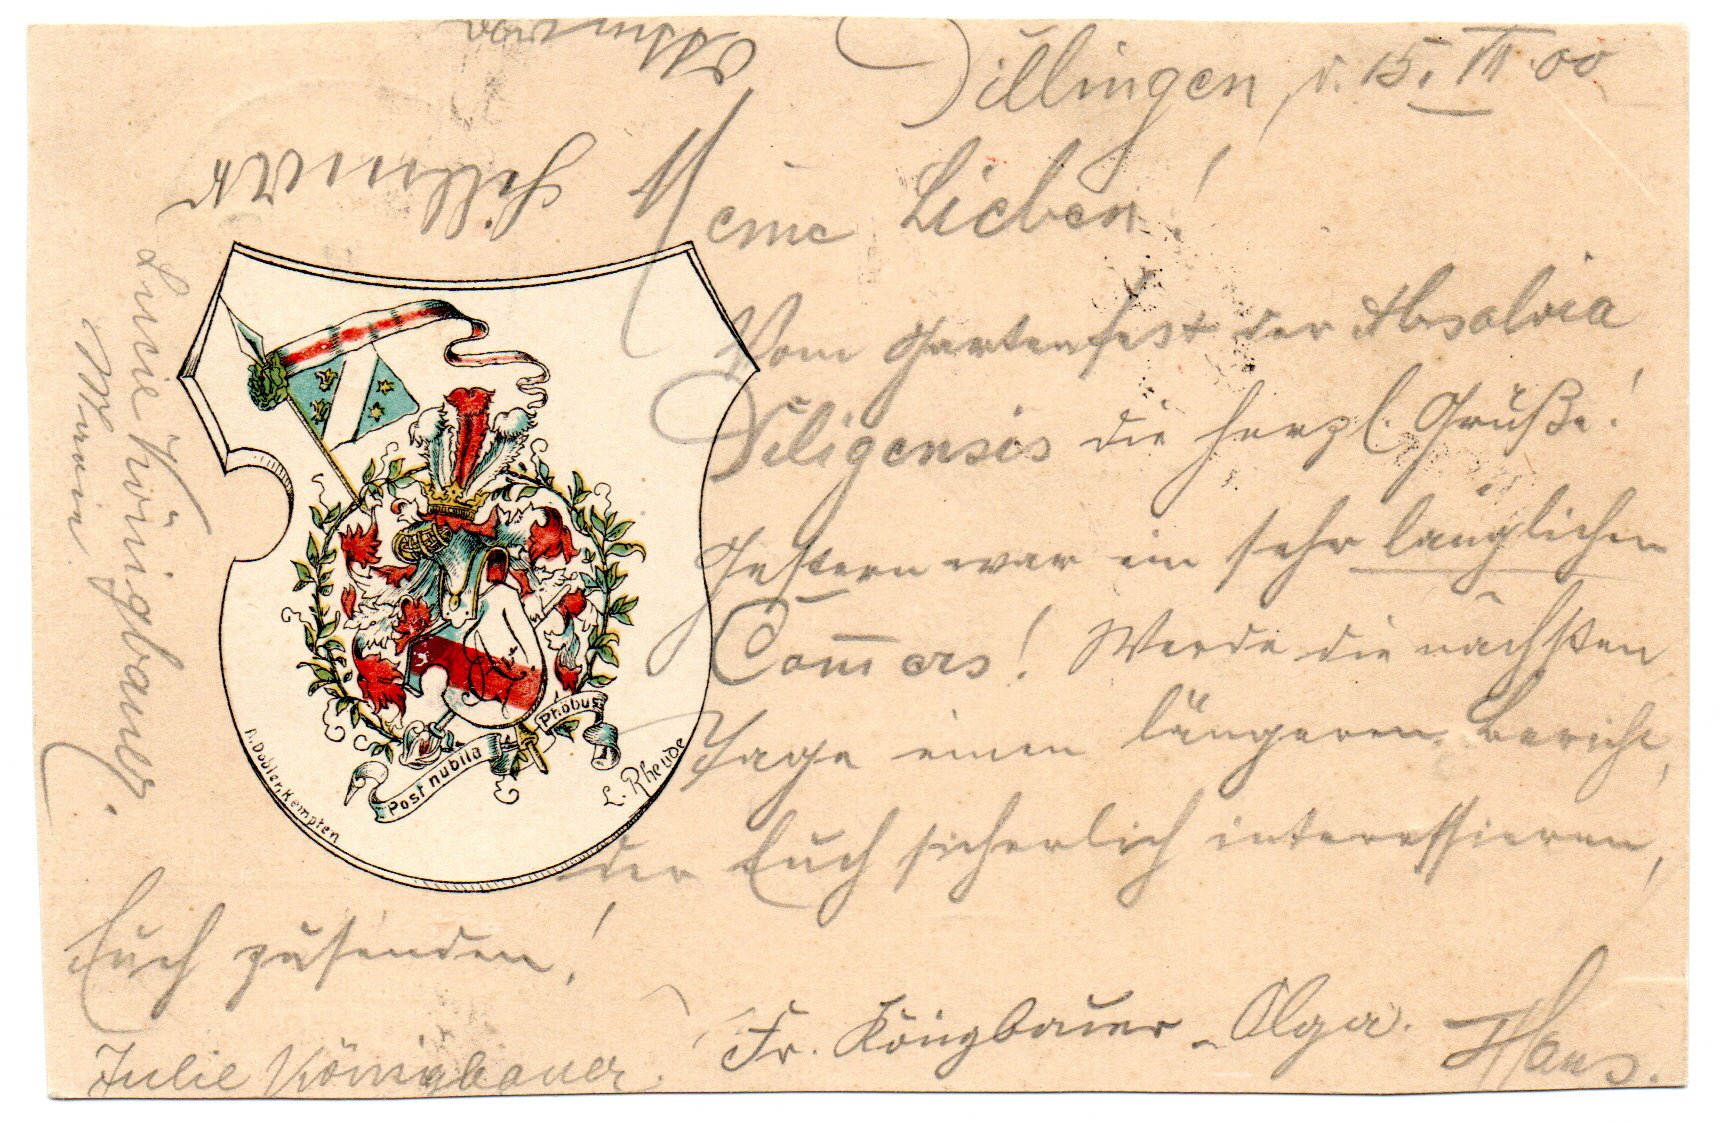 Dillingen, d. 15. VII. 00
Meine Lieben!
Vom Gartenfest der Absolvia
Diligensis die herzl. Grüße!
Gestern war ein sehr länglicher
Com̅ers! Werde die nächsten
Tage einen längeren Bericht,
der Euch sicherlich interessieren,
Euch zusenden!
Fr. Königbauer Olga. Hans.
Julie Königbauer.
Lucie Königbauer.
Post nubila Phöbus
A. Dobler, Kempten
L. Rheude